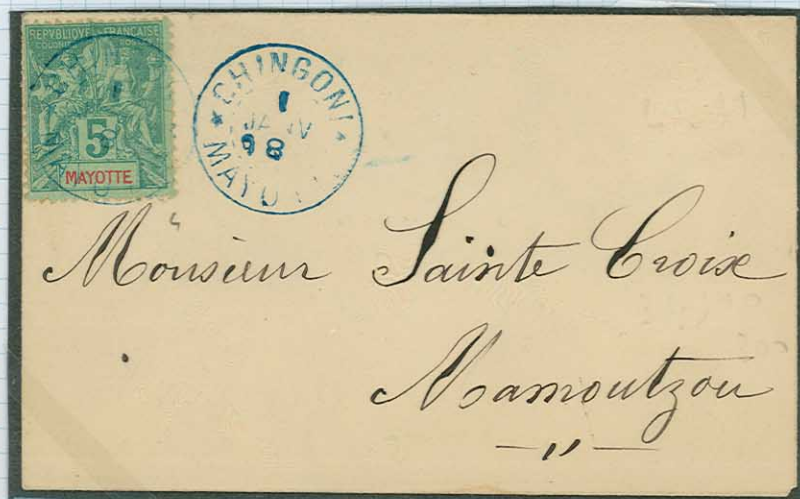 REPVBLIQUE FRANÇAISE
5
MAYOTTE
CHINGONI
1
JANV
98
MAYO
Monsieur Sainte Croix
Mamoutzou